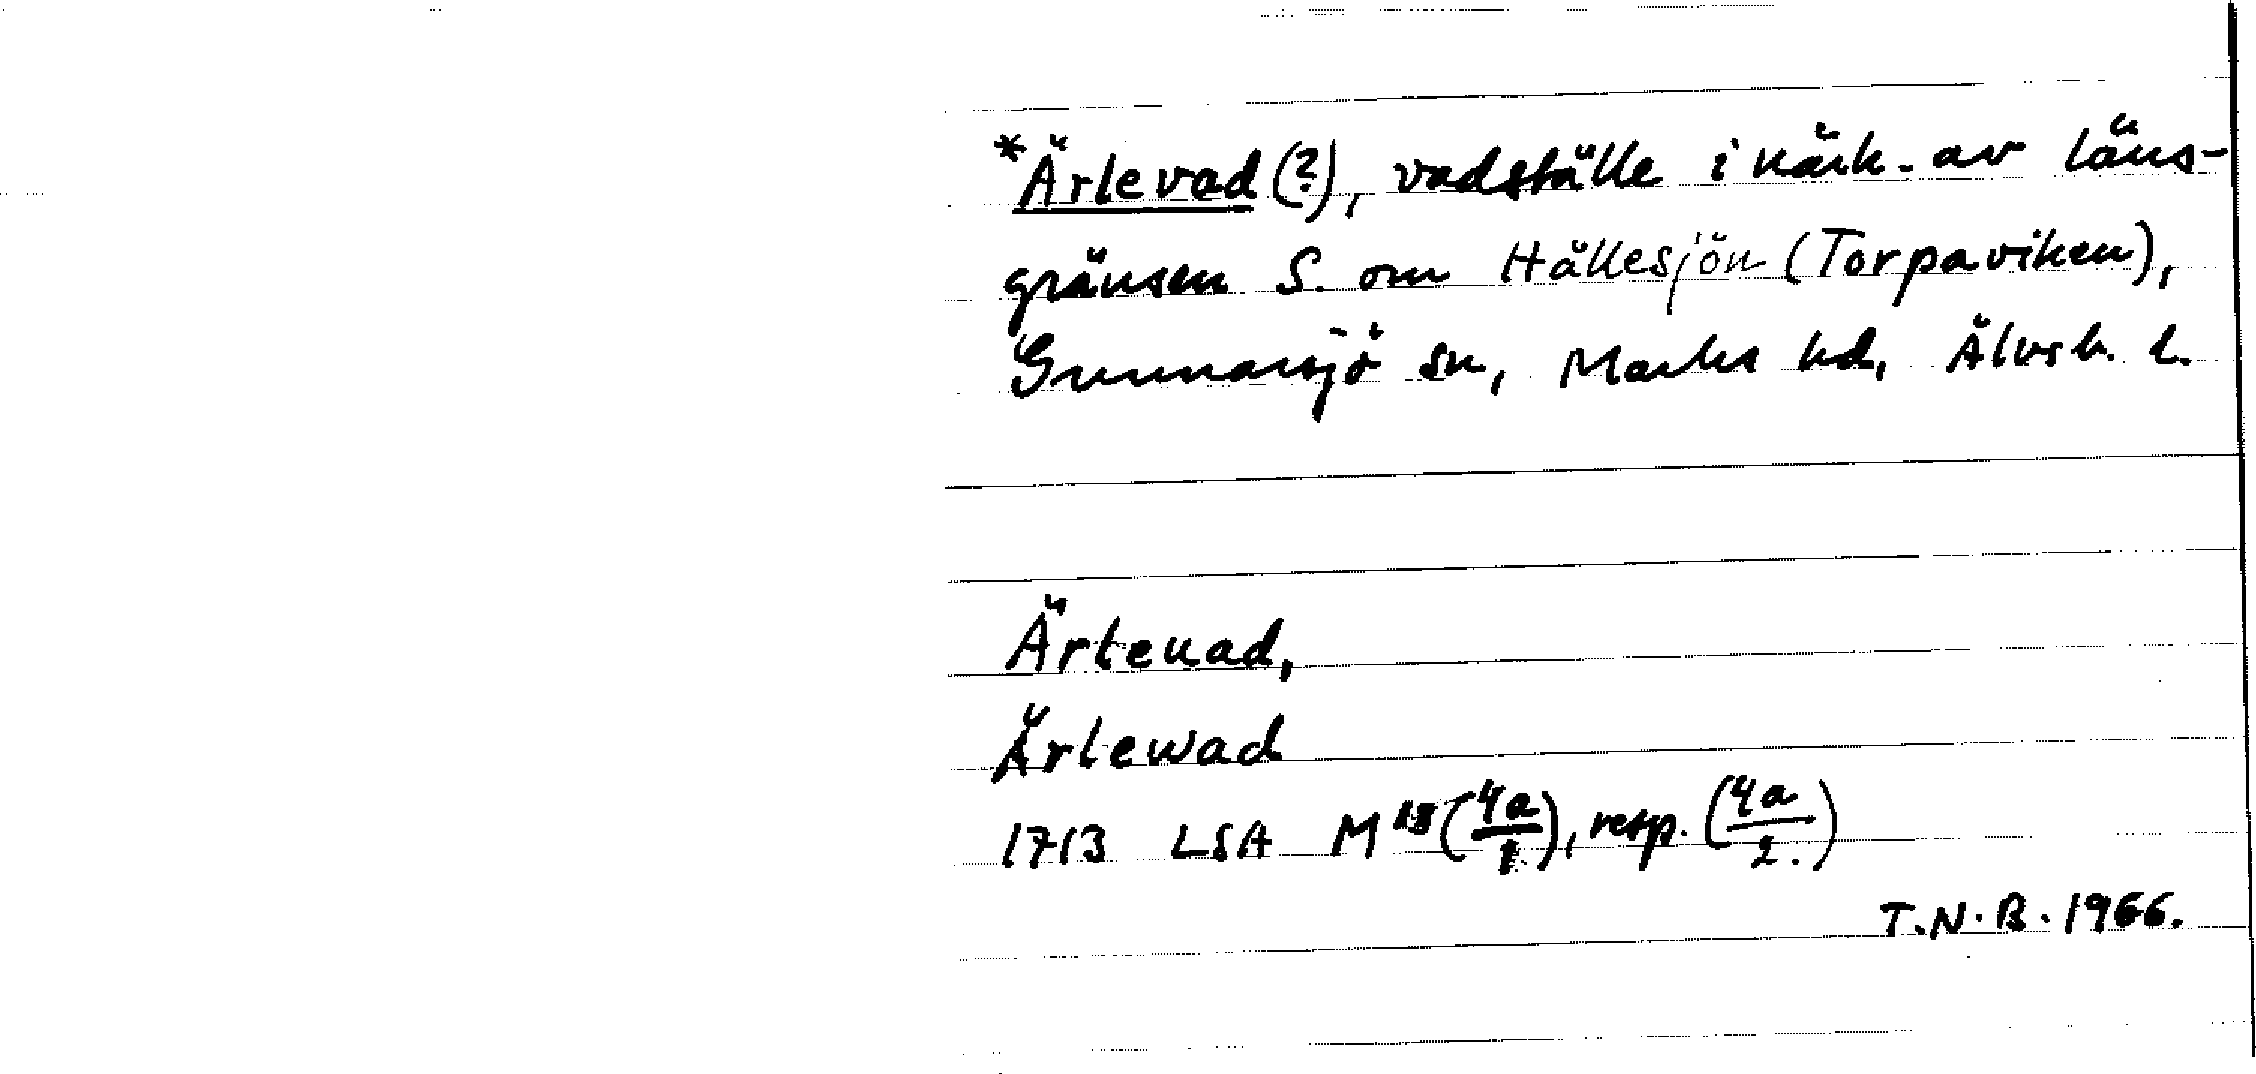 *Ärlevad (?), vadställe i närh. av läns-
gränsen S. om Hällesjön (Torpaviken),
Gunnarsjö sn, Marks hd, Älvsb. l.
Ärteuad,
Ärlewad
1713 LSA M¹⁸ (4a/1), resp. (4a/2.)
T.N.B. 1966.